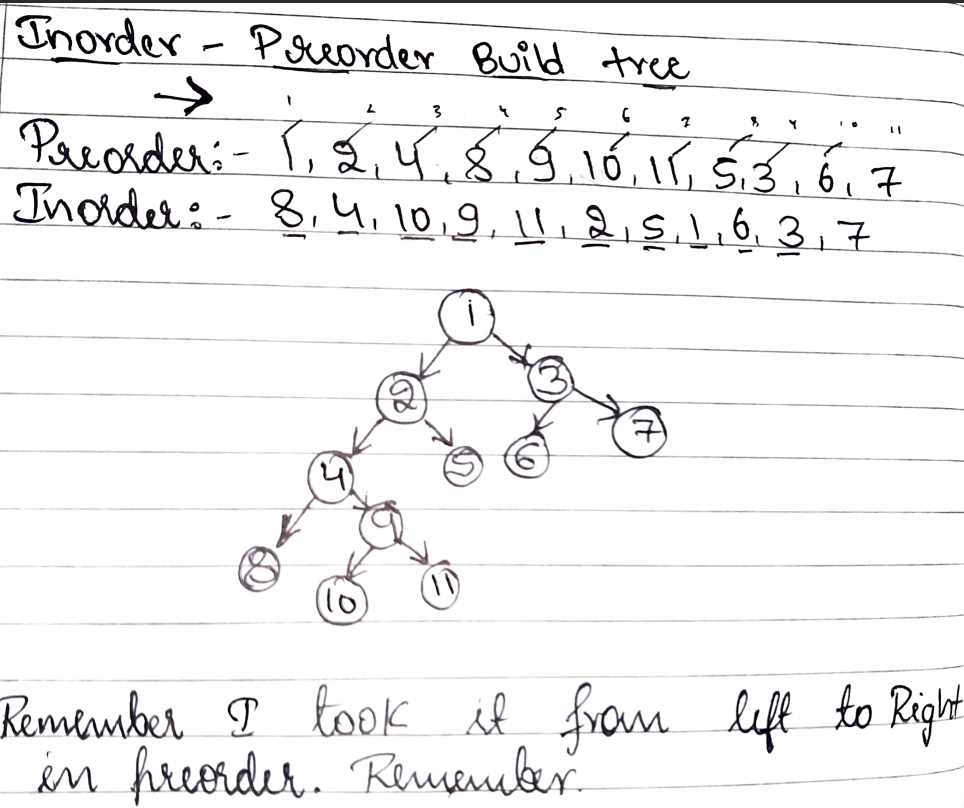 Inorder - Preorder Build tree
→
1 2 3 4 5 6 7 8 9 10 11
Preorder:- 1, 2, 4, 8, 9, 10, 11, 5, 3, 6, 7
Inorder:- 8, 4, 10, 9, 11, 2, 5, 1, 6, 3, 7
1
2 3
4 5 6 7
8 9
10 11
Remember I took it from left to Right
in preorder. Remember.